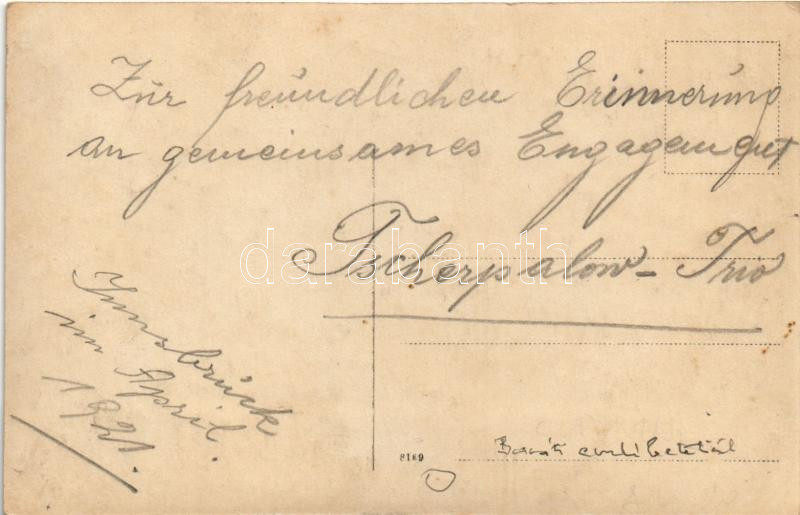 Zur freundlichen Erinnerung
an gemeinsames Engagement
Tscherpalow-Trio
Innsbruck
im April.
1921.
8169
darabanth